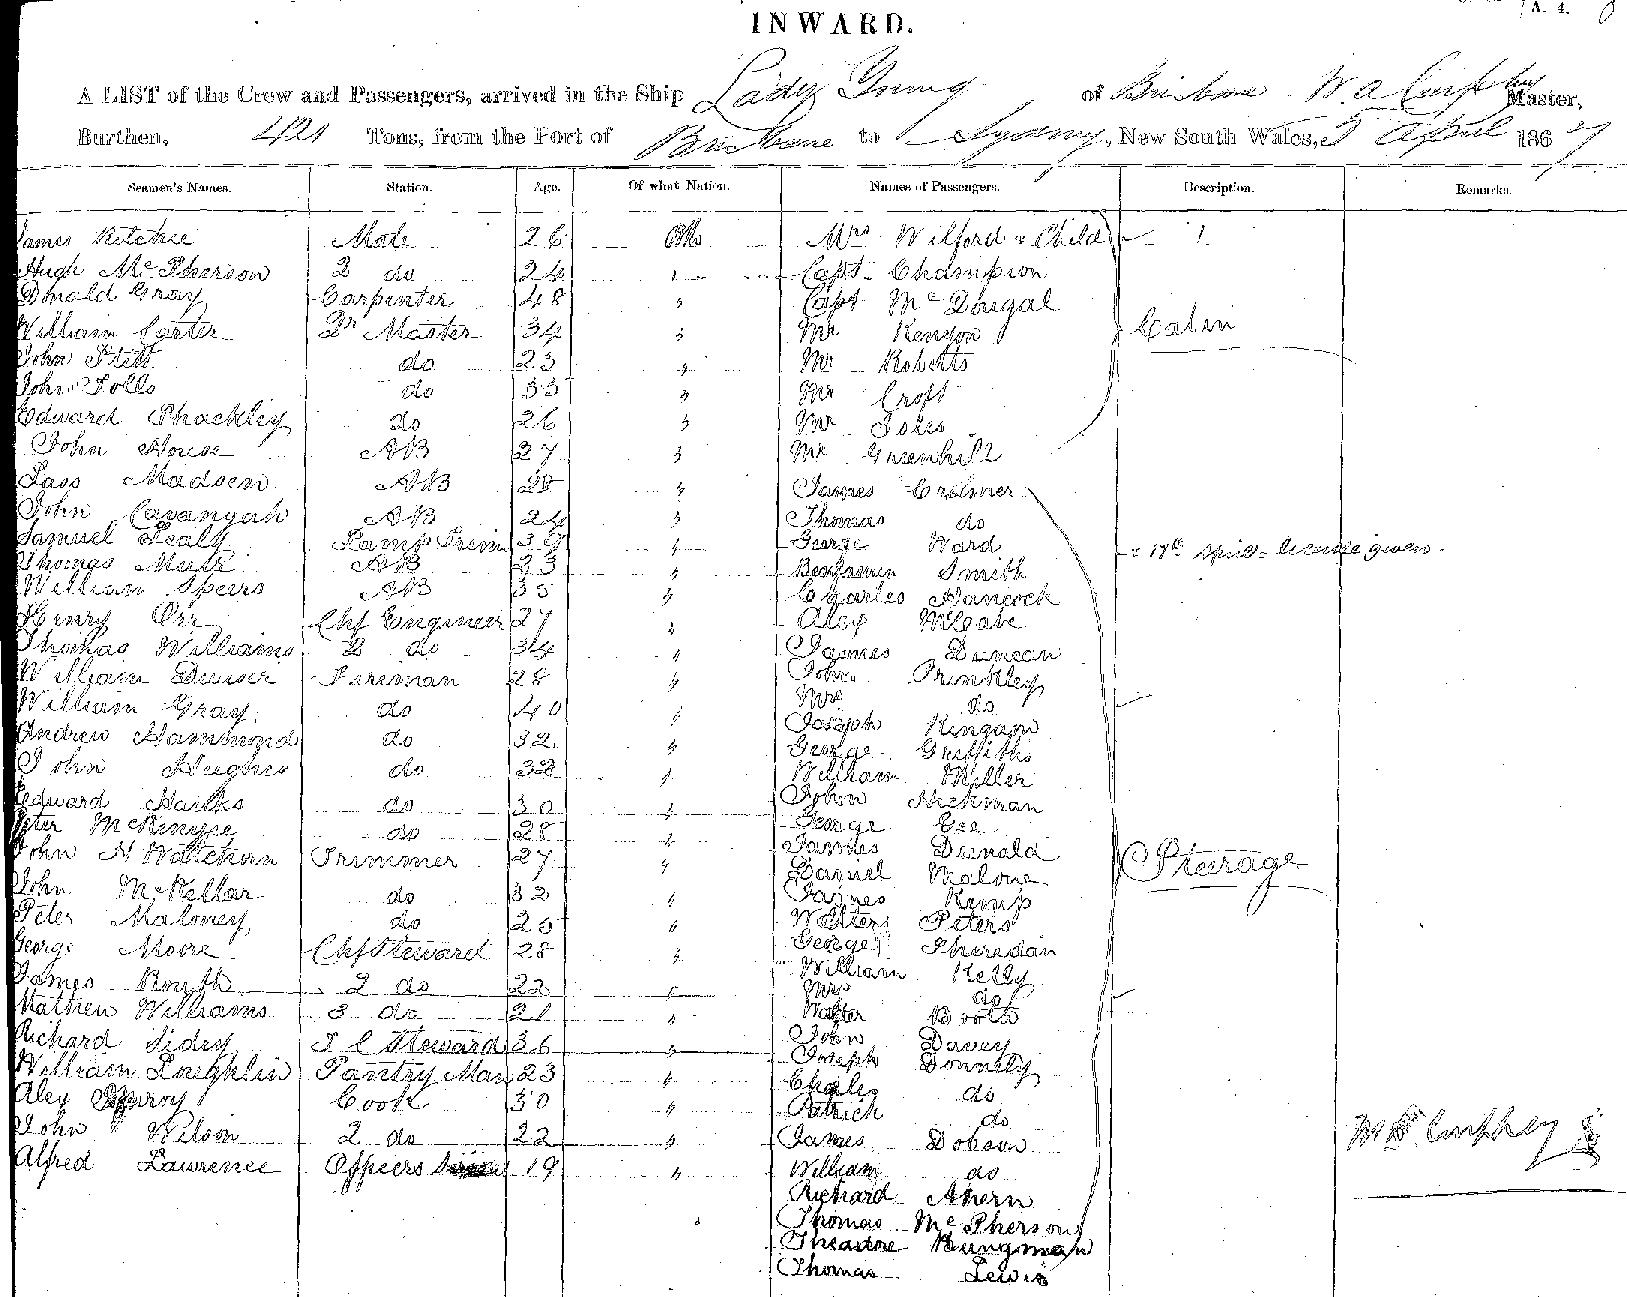 A. 4.
INWARD.
A LIST of the Crew and Passengers, arrived in the Ship Lady Young of Brisbane W. A. Master,
Burthen, 421 Tons, from the Port of Brisbane to Sydney, New South Wales, April 1867
Seamen's Names. Station. Age. Of what Nation. Names of Passengers. Description. Remarks.
James Ritchie Mate 26 Mrs Wilford & Child 1
Hugh McPherson 2 do 24 " Capt Champion
Donald Gray Carpenter 48 " Capt McDougal
William Carter Qr Master 34 " Mr Kenyon Cabin
John do 23 " Mr Roberts
John Folls do 33 " Mr Croft
Edward Shackley do 26 " Mr
John House AB 27 " Mr Greenhill
Madsen AB " James Cralmer
John Cavangah AB 24 " Thomas do
Samuel Lamp Trim " George Ward license given.
Thomas AB 23 " Benjamin Smith
William Speers AB 35 " Charles Hancock
Henry Orr Chf Engineer 27 " Alex
Thomas Williams 2 do 34 " James Duncan
William Fireman 28 " John
William Gray do 40 " Mrs do
Andrew Hammond do 32 " Joseph
John Hughes do " George Griffiths
William Miller
Edward do 30 " John Hickman
Peter do 28 " George Gee
John H Watchorn Trimmer 27 " James Donald
Steerage
Daniel Malone
John McKellar do 32 " James Kemp
Peter Maloney do " Peters
George Moore Chf Steward 28 " George Sheridan
William Kelly
James 2 do 22 " Mrs do
Mathew Williams 3 do 21 " Walter Booth
Richard Sidey Steward 36 " John Davey
Joseph Donnelly
William Laughlin Pantry Man 23 " Charles do
Alex Cook 30 " Patrick do
John Wilson 2 do 22 " James Dobson
Alfred Lawrence Officers 19 " William do
Richard Ahern
Thomas McPherson
Theodore Bungman
Thomas Lewis